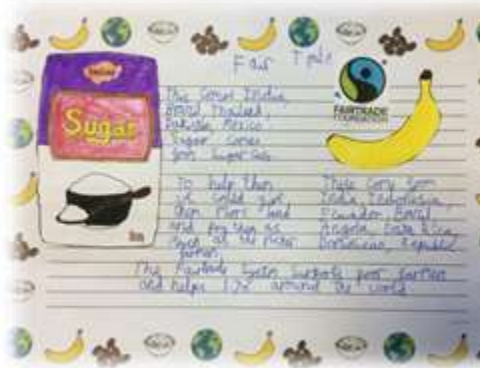 Fair Trade
Sugar
FAIRTRADE
FOUNDATION
This comes India,
Brazil Thailand,
Pakistan, Mexico.
Sugar comes
from sugar
To help them
we could give
them more land
and pay them as
much as the richer
farmers
These come from
India, Indonesia,
Ecuador, Brazil,
Angola, Costa Rica,
Dominican, Republic
The Fairtrade system supports poor farmers
and helps around the world